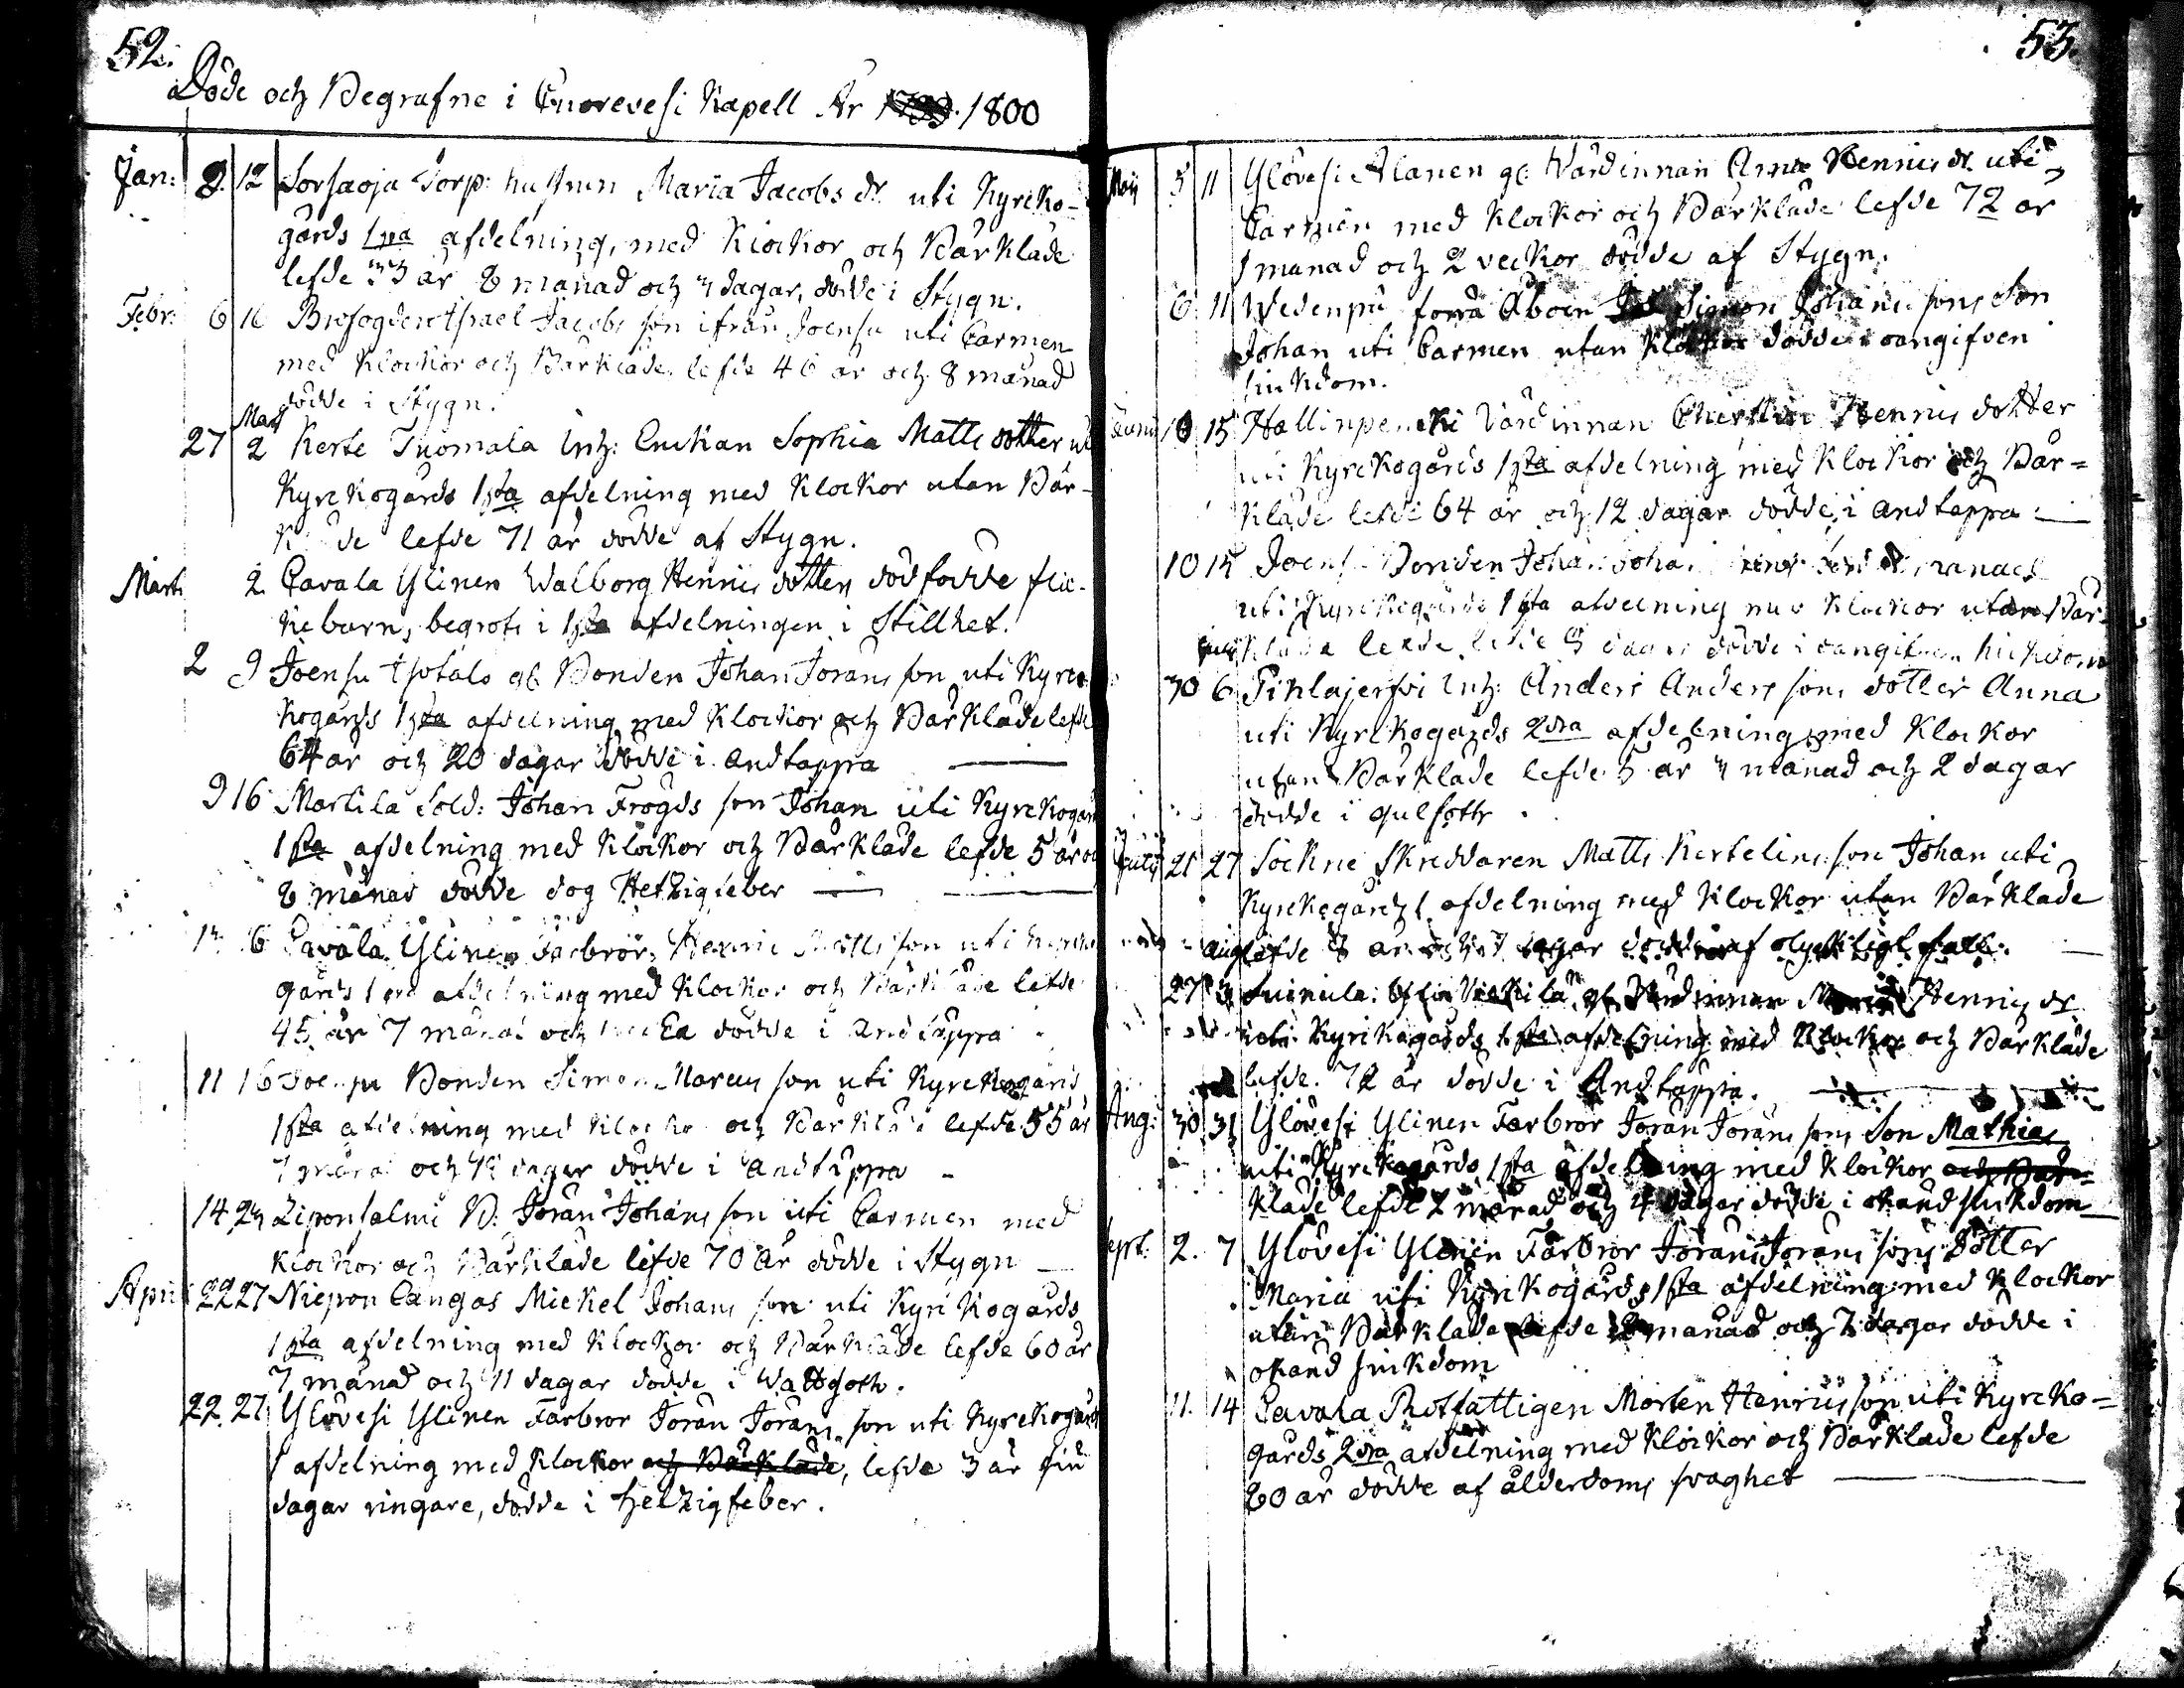 52.
Döde och Begrafne i Cuorevesi Kapell År 1800
Jan: 8. 12 Sorsaoja Torp: hustrun Maria Jacobs dr uti Kyrcko-
gårds 1sta afdelning, med Klockor och Bårkläde
lefde 33 år 8 månad och 3 dagar, dödde i Stygn.
Febr: 6 16 Jacobs son ifrån Joensu uti Carmen
med Klockor och Bårkläde lefde 46 år och 8 månad
dödde i Stygn.
Mart
27 2 Kerte Tuomala Inh: Enckan Sophia Matts dotter uti
Kyrckogårds 1sta afdelning med Klockor utan Bår-
kläde lefde 71 år dödde af Stygn.
Marti 2 Pavala Ylinen Walborg Henrics dotter dödfödde flic-
kebarn, begrofs i 1sta afdelningen i Stillhet.
2 9 Joensu Isotalo gl: Bonden Johan Jorans son uti Kyrc-
kogårds 1sta afdelning med Klockor och Bårkläde lefde
64 år och 20 dagar dödde i andtäppa
9 16 Martila Sold: Johan Frogds son Johan uti Kyrckogårds
1sta afdelning med Klockor och Bårkläde lefde 5 år och
8 månad dödde dog Hetzigfeber
16 Pavala Ylinen Farbror Henric Matts son uti
gårds 1sta afdelning med Klockor och Bårkläde lefde
45 år 7 månad och dödde i andtäppa
11 16 Joensu Bonden Simon Marcus son uti Kyrckogårds
1sta afdelning med Klockor och Bårkläde lefde 55 år
7 månad och dagar dödde i andtäppa
14 23 Liponsalmi B: Joran Johans son uti Carmen med
Klockor och Bårkläde lefde 70 år dödde i Stygn
April 22 27 Niepon Cangas Mickel Johans son uti Kyrckogårds
1sta afdelning med Klockor och Bårkläde lefde 60 år
7 månad och 11 dagar dödde i Wattgoth.
22. 27 Ylövesi Ylinen Farbror Joran Jorans son uti Kyrckogårds
1 afdelning med Klockor och Bårkläde, lefde 3 år
dagar ringare, dödde i Hetzigfeber.
53.
Maij 5 11 Ylövesi Alanen gl: Wärdinnan Anna Henrics dr uti
Carmen med Klockor och Bårkläde lefde 72 år
1 månad och 2 veckor dödde af Stygn.
6 11 Wedenpä forra Åboen Simon Johans sons Son
Johan uti Carmen utan Klockor dödde i oangifven
siukdom.
10 15 Hallinpencki Värdinnan Cherstin Henrics dotter
uti Kyrckogårds 1sta afdelning med Klockor och Bår=
kläde lefde 64 år och 12 dagar dödde i andtäppa
10 15 Bonden Johan
uti Kyrckogårds 1sta afdelning med Klockor utan Bår-
kläde lefde dagar dödde i oangifven siukdom
30 6 Pihlajerfvi Inh: Anders Anders sons dotter Anna
uti Kyrckogårds 2dra afdelning med Klockor
utan Bårkläde lefde 5 år 3 månad och 2 dagar
dödde i gulsoth.
July 21 27 Sockne Skreddaren Matts Kertelins son Johan uti
Kyrckogårds 1 afdelning med Klockor utan Bårkläde
Aug lefde 8 år dagar dödde af olyckligt fall.
27 3 Suinula gl: Wärdinnan Henrics dr
uti Kyrckogårds 1sta afdelning med Klockor och Bårkläde
lefde 72 år dödde i Andtäppa.
Aug: 30 31 Ylövesi Ylinen Farbror Joran Jorans sons Son Mathias
uti Kyrckogårds 1sta afdelning med Klockor och Bår=
kläde lefde 2 månad och 4 dagar dödde i okänd siukdom
Sept: 2. 7 Ylövesi Ylinen Farbror Jorans Jorans sons Dotter
Maria uti Kyrckogårds 1sta afdelning med Klockor
utan Bårkläde lefde 2 månad och 7 dagar dödde i
okänd siukdom
11. 14 Pavala Rotfattigen Morten Henrics son uti Kyrcko=
gårds 2dra afdelning med Klockor och Bårkläde lefde
80 år dödde af ålderdoms svaghet